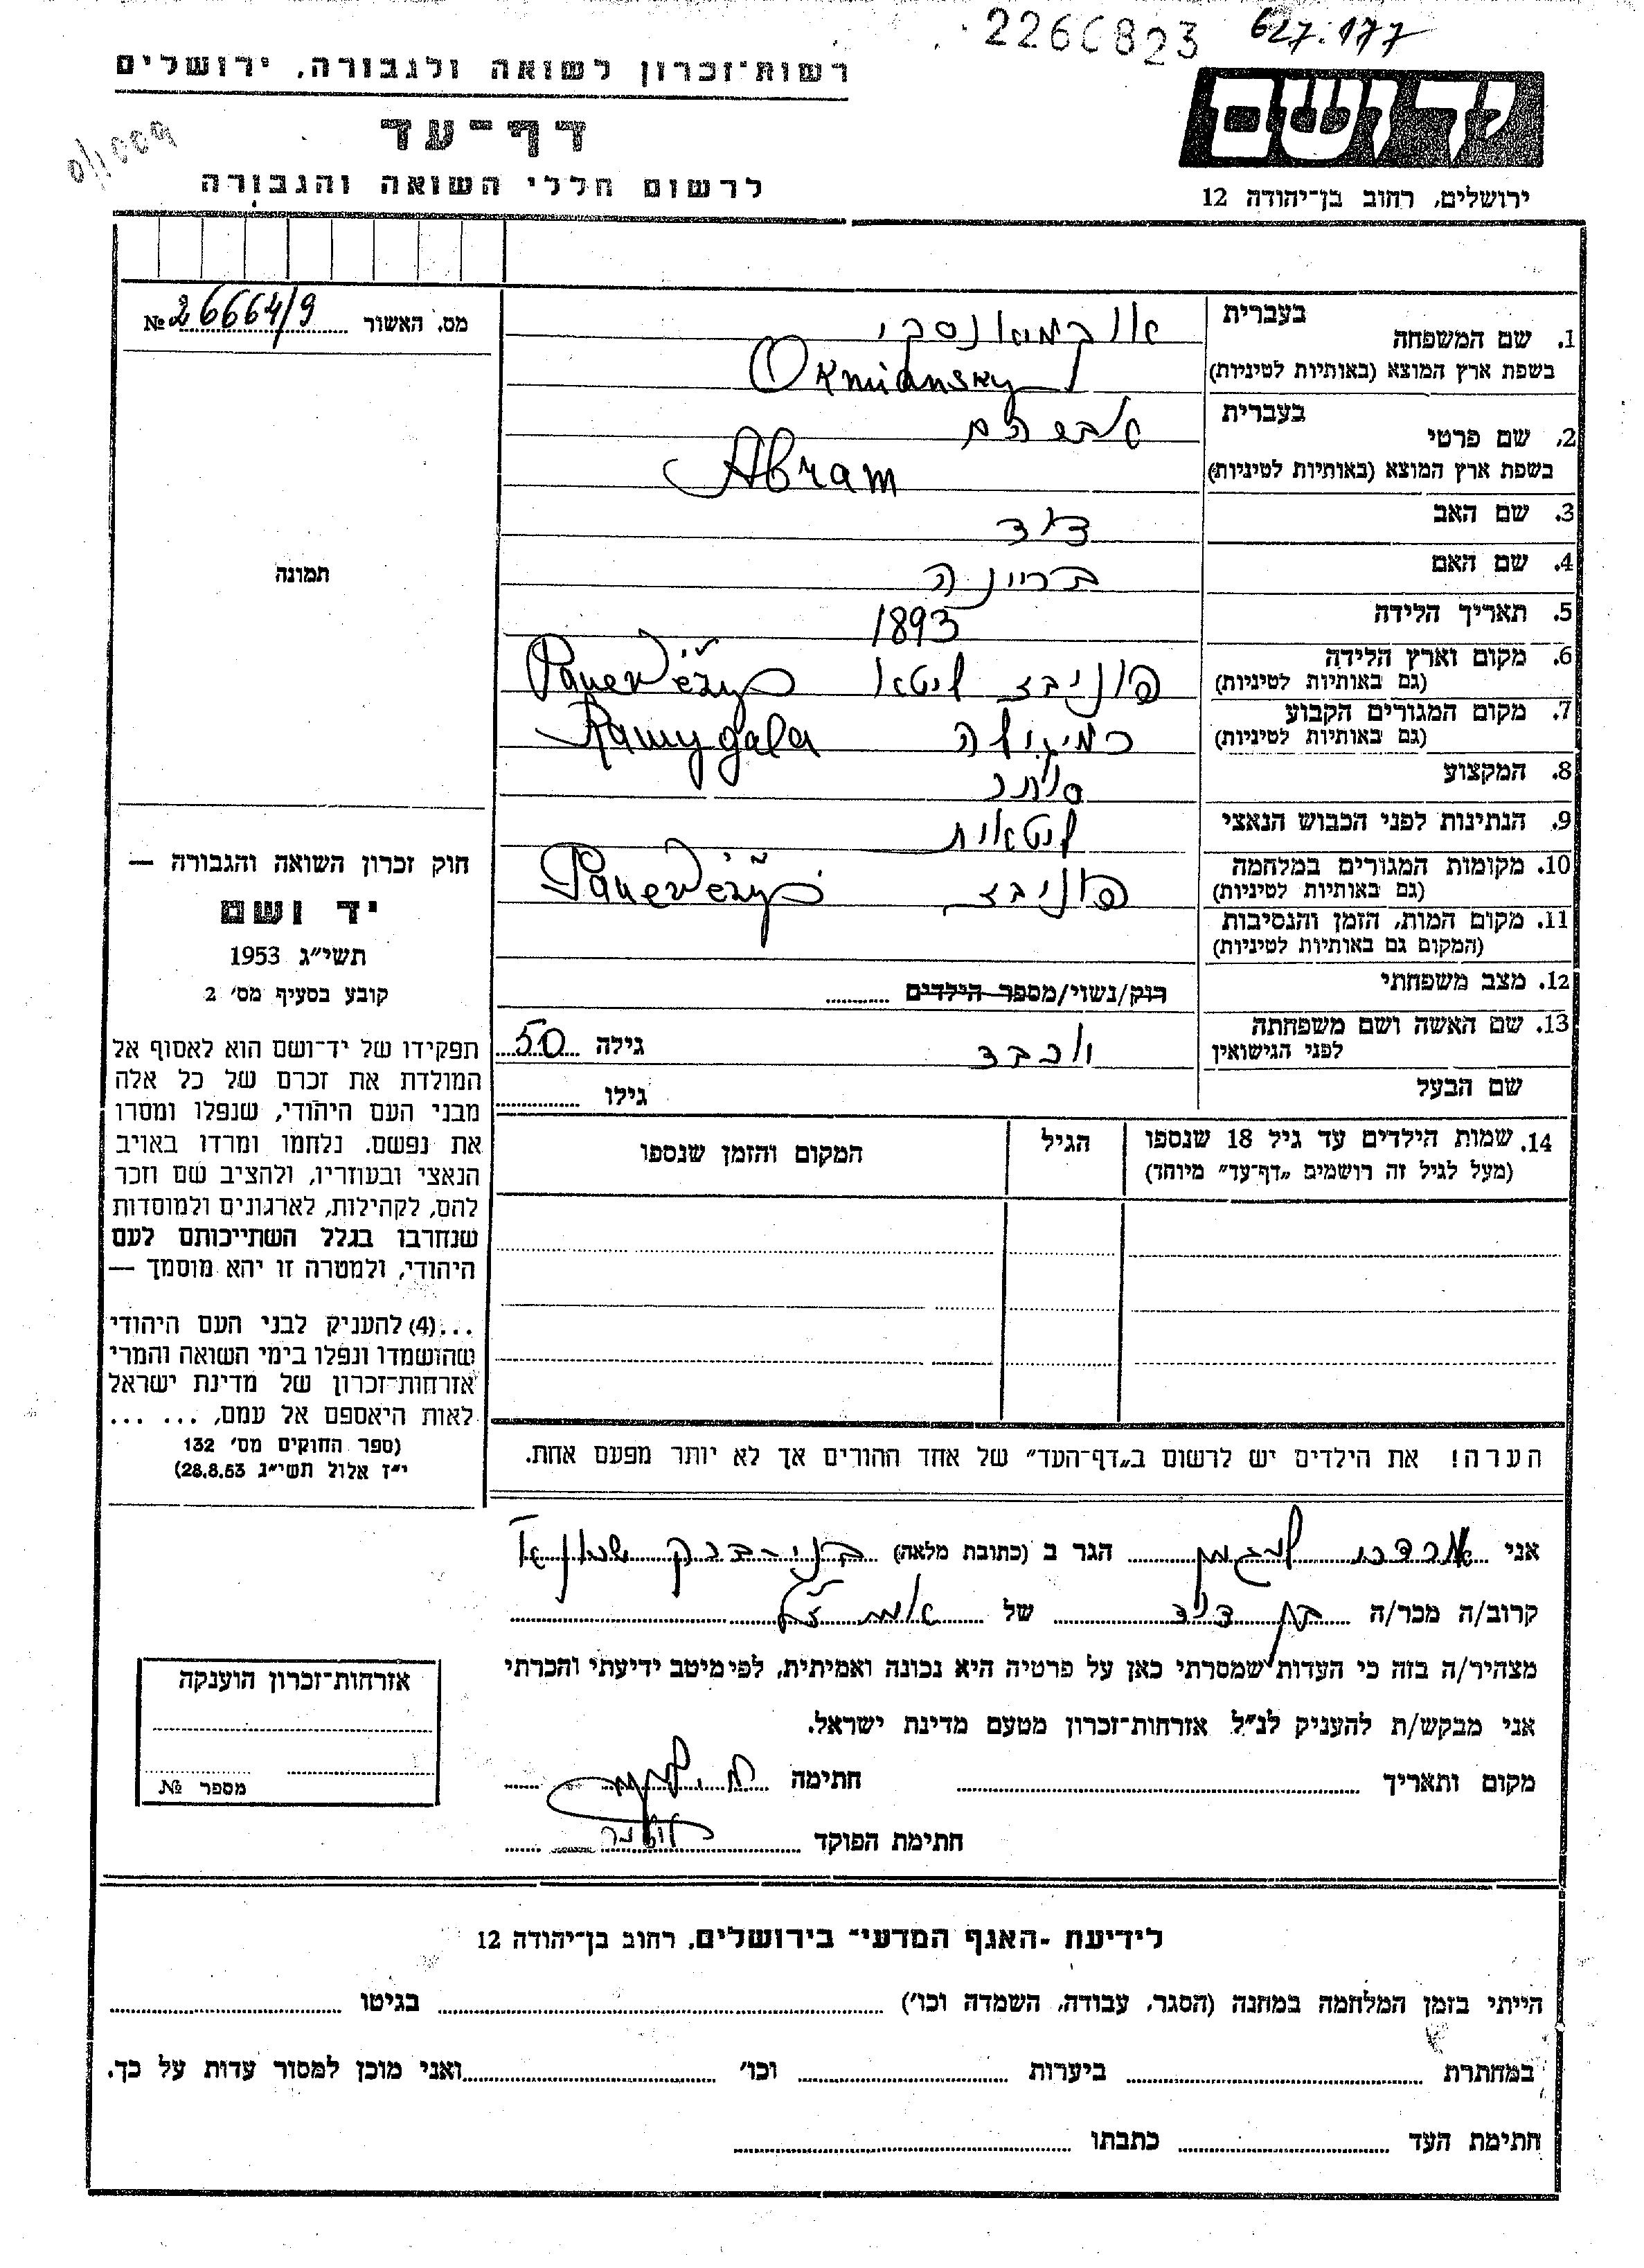 2266823 627.177
רשות־זכרון לשואה ולגבורה, ירושלים
דף־עד
לרשום חללי השואה והגבורה
יד ושם
ירושלים, רחוב בן־יהודה 12
מס. האשור № 26664/9
בעברית
1. שם המשפחה אוקמיאנסקי
בשפת ארץ המוצא (באותיות לטיניות) Okmiansky
בעברית
2. שם פרטי אברהם
בשפת ארץ המוצא (באותיות לטיניות) Abram
3. שם האב דוד
4. שם האם בריינה
5. תאריך הלידה 1893
6. מקום וארץ הלידה פוניבז ליטא Panevėžys
(גם באותיות לטיניות)
7. מקום המגורים הקבוע רמיגולה Ramygala
(גם באותיות לטיניות)
8. המקצוע סוחר
9. הנתינות לפני הכבוש הנאצי ליטאית
10. מקומות המגורים במלחמה פוניבז Panevėžys
(גם באותיות לטיניות)
11. מקום המות, הזמן והנסיבות
(המקום גם באותיות לטיניות)
12. מצב משפחתי רווק/נשוי/מספר הילדים
13. שם האשה ושם משפחתה לפני הגישואין יוכבד גילה 50
שם הבעל גילו
14. שמות הילדים עד גיל 18 שנספו הגיל המקום והזמן שנספו
(מעל לגיל זה רושמים „דף־עד” מיוחד)
הערה! את הילדים יש לרשום ב„דף־העד” של אחד ההורים אך לא יותר מפעם אחת.
תמונה
חוק זכרון השואה והגבורה —
יד ושם
תשי״ג 1953
קובע בסעיף מס׳ 2
תפקידו של יד־ושם הוא לאסוף אל
המולדת את זכרם של כל אלה
מבני העם היהודי, שנפלו ומסרו
את נפשם, נלחמו ומרדו באויב
הנאצי ובעוזריו, ולהציב שם וזכר
להם, לקהילות, לארגונים ולמוסדות
שנחרבו בגלל השתייכותם לעם
היהודי, ולמטרה זו יהא מוסמך —
...(4) להעניק לבני העם היהודי
שהושמדו ונפלו בימי השואה והמרי
אזרחות־זכרון של מדינת ישראל
לאות היאספם אל עמם, ... ...
(ספר החוקים מס׳ 132
י״ז אלול תשי״ג 28.8.53)
אני מרדכי הגר ב (כתובת מלאה) בני-ברק
קרוב/ה מכר/ה בן דוד של אמו ז״ל
מצהיר/ה בזה כי העדות שמסרתי כאן על פרטיה היא נכונה ואמיתית, לפי מיטב ידיעתי והכרתי
אני מבקש/ת להעניק לנ״ל אזרחות־זכרון מטעם מדינת ישראל.
מקום ותאריך חתימה
חתימת הפוקד
אזרחות־זכרון הוענקה
מספר №
לידיעת „האגף המדעי” בירושלים, רחוב בן־יהודה 12
הייתי בזמן המלחמה במחנה (הסגר, עבודה, השמדה וכו׳) בגיטו
במחתרת ביערות וכו׳ ואני מוכן למסור עדות על כך.
חתימת העד כתבתו